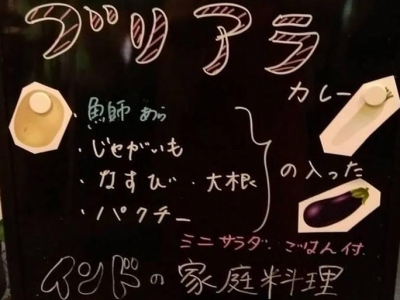 ブリアラ
カレー
・魚師 あら
・じゃがいも
・なすび・大根
・パクチー
の入った
ミニサラダ、ごはん付、
インドの家庭料理